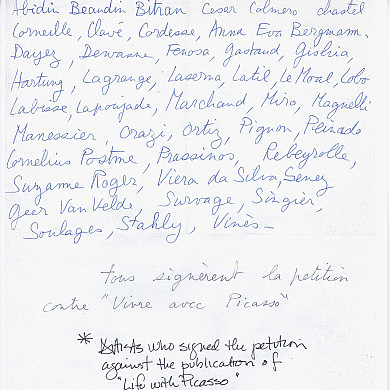 Abidin Beaudin Bitran Cesar Calmero chastel
Corneille, Clavé, Cordesse, Anna Eva Bergmann.
Dayez, Dewasne, Fenosa, Gastaud, Gishia,
Hartung, Lagrange, Laserna, Latil, Le Moal, Lobo
Labisse, Lapoujade, Marchand, Miro, Magnelli
Manessier, Orazi, Ortiz, Pignon, Peinado
Cornelius Postma, Prassinos, Rebeyrolle,
Suzanne Roger, Viera da Silva, Senez
Geer Van Velde, Survage, Singier,
Soulages, Stahly, Vinès—
tous signèrent la petition
contre "Vivre avec Picasso"
* Artists who signed the petition
against the publication of
"Life with Picasso"